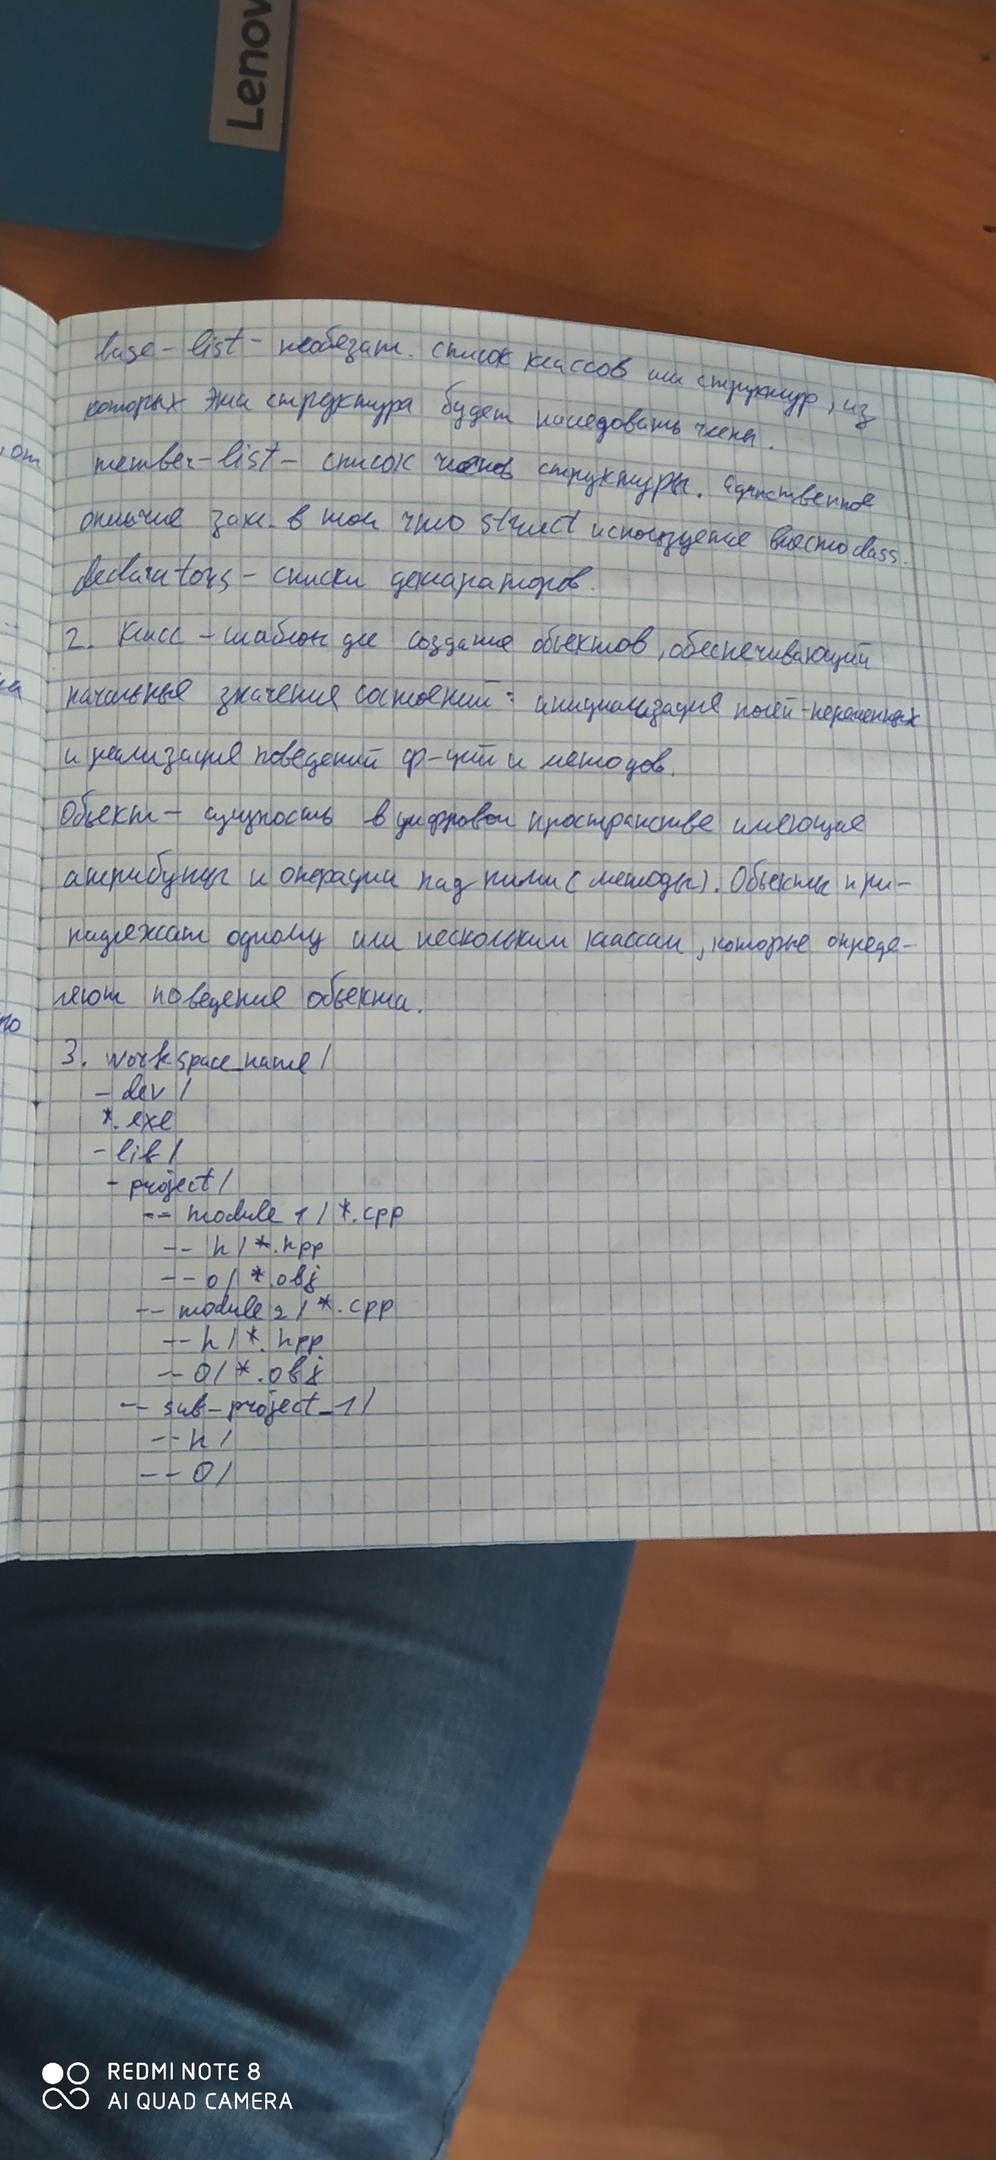 Lenov
base-list - необезат. список классов или структур, из
которых эта структура будет наследовать члены.
member-list - список членов структуры. Единственное
отличие закл. в том что struct используется вместо class.
declarators - списки деклараторов.
2. Класс - шаблон для создания объектов, обеспечивающий
начальные значения состояний: инициализация полей-переменных
и реализация поведений ф-ций и методов.
Объект - сущность в цифровом пространстве имеющие
атрибуты и операции над ними (методы). Объекты при-
надлежат одному или нескольким классам, которые опреде-
ляют поведение объекта.
3. workspace_name/
- dev/
*.exe
- lib/
- project/
-- module 1/ *.cpp
-- h/ *.hpp
-- o/ *.obj
-- module 2/ *.cpp
-- h/ *.hpp
-- o/ *.obj
-- sub-project_1/
-- h/
-- o/
от
но
REDMI NOTE 8
AI QUAD CAMERA